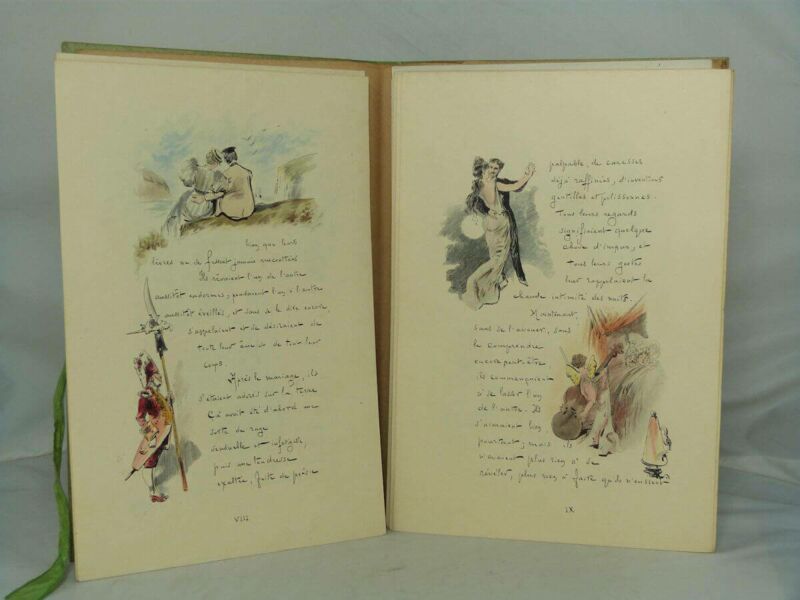 bien que leurs
lèvres ne se fussent jamais rencontrées
Ils rêvaient l'un de l'autre
aussitôt endormis, pensaient l'un à l'autre
aussitôt éveillés, et sans se le dire encore,
s'appelaient et se désiraient de
toute leur âme et de tout leur
corps.
Après le mariage, ils
s'étaient adorés sur la terre
Ça avait été d'abord une
sorte de rage
sensuelle et infatigable,
puis une tendresse
exaltée, faite de poésie
VIII
palpable, de caresses
déjà raffinées, d'inventions
gentilles et polissonnes.
Tous leurs regards
signifiaient quelque
chose d'impur, et
tous leurs gestes
leur rappelaient la
chaude intimité des nuits.
Maintenant,
sans se l'avouer, sans
le comprendre
encore peut-être,
ils commençaient
à se lasser l'un
de l'autre. Ils
s'aimaient bien
pourtant; mais ils
n'avaient plus rien à se
révéler, plus rien à faire qu'ils n'eussent
IX